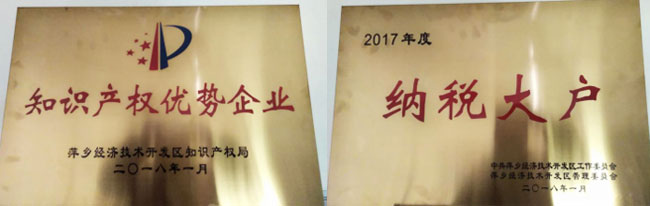 知识产权优势企业
萍乡经济技术开发区知识产权局
二〇一八年一月
2017年度
纳税大户
中共萍乡经济技术开发区工作委员会
萍乡经济技术开发区管理委员会
二〇一八年一月